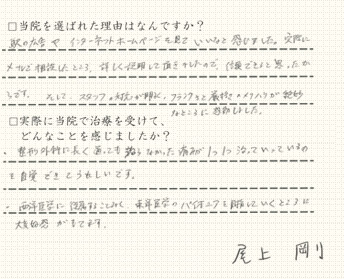 □当院を選ばれた理由はなんですか？
駅の広告や インターネットホームページを見て いいなと感じました。実際に
メールで相談したところ、詳しく説明して頂きましたので、信頼できると思ったか
らです。 そして、スタッフの対応が明るく、フランクさと厳格さのメリハリが絶妙
なところに感動しました。
□実際に当院で治療を受けて、
どんなことを感じましたか？
・ 整形外科に長く通っても 治らなかった痛みが 1つ1つ 治っていっているの
を自覚できてうれしいです。
・ 西洋医学に 東洋医学のパイオニアを目指していくところに
が もてます。
尾上 剛